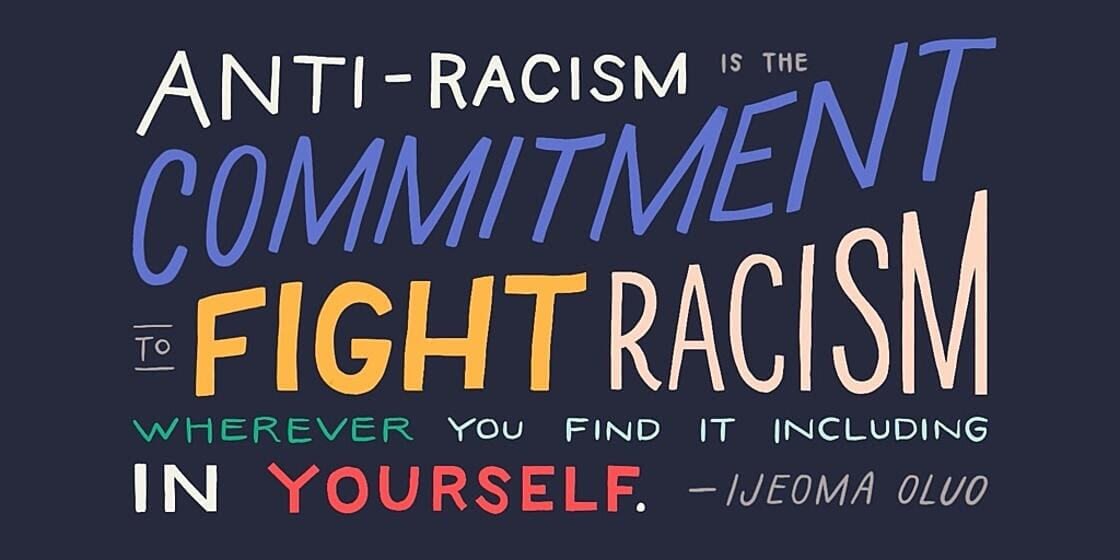 ANTI-RACISM IS THE
COMMITMENT
TO FIGHT RACISM
WHEREVER YOU FIND IT INCLUDING
IN YOURSELF. —IJEOMA OLUO